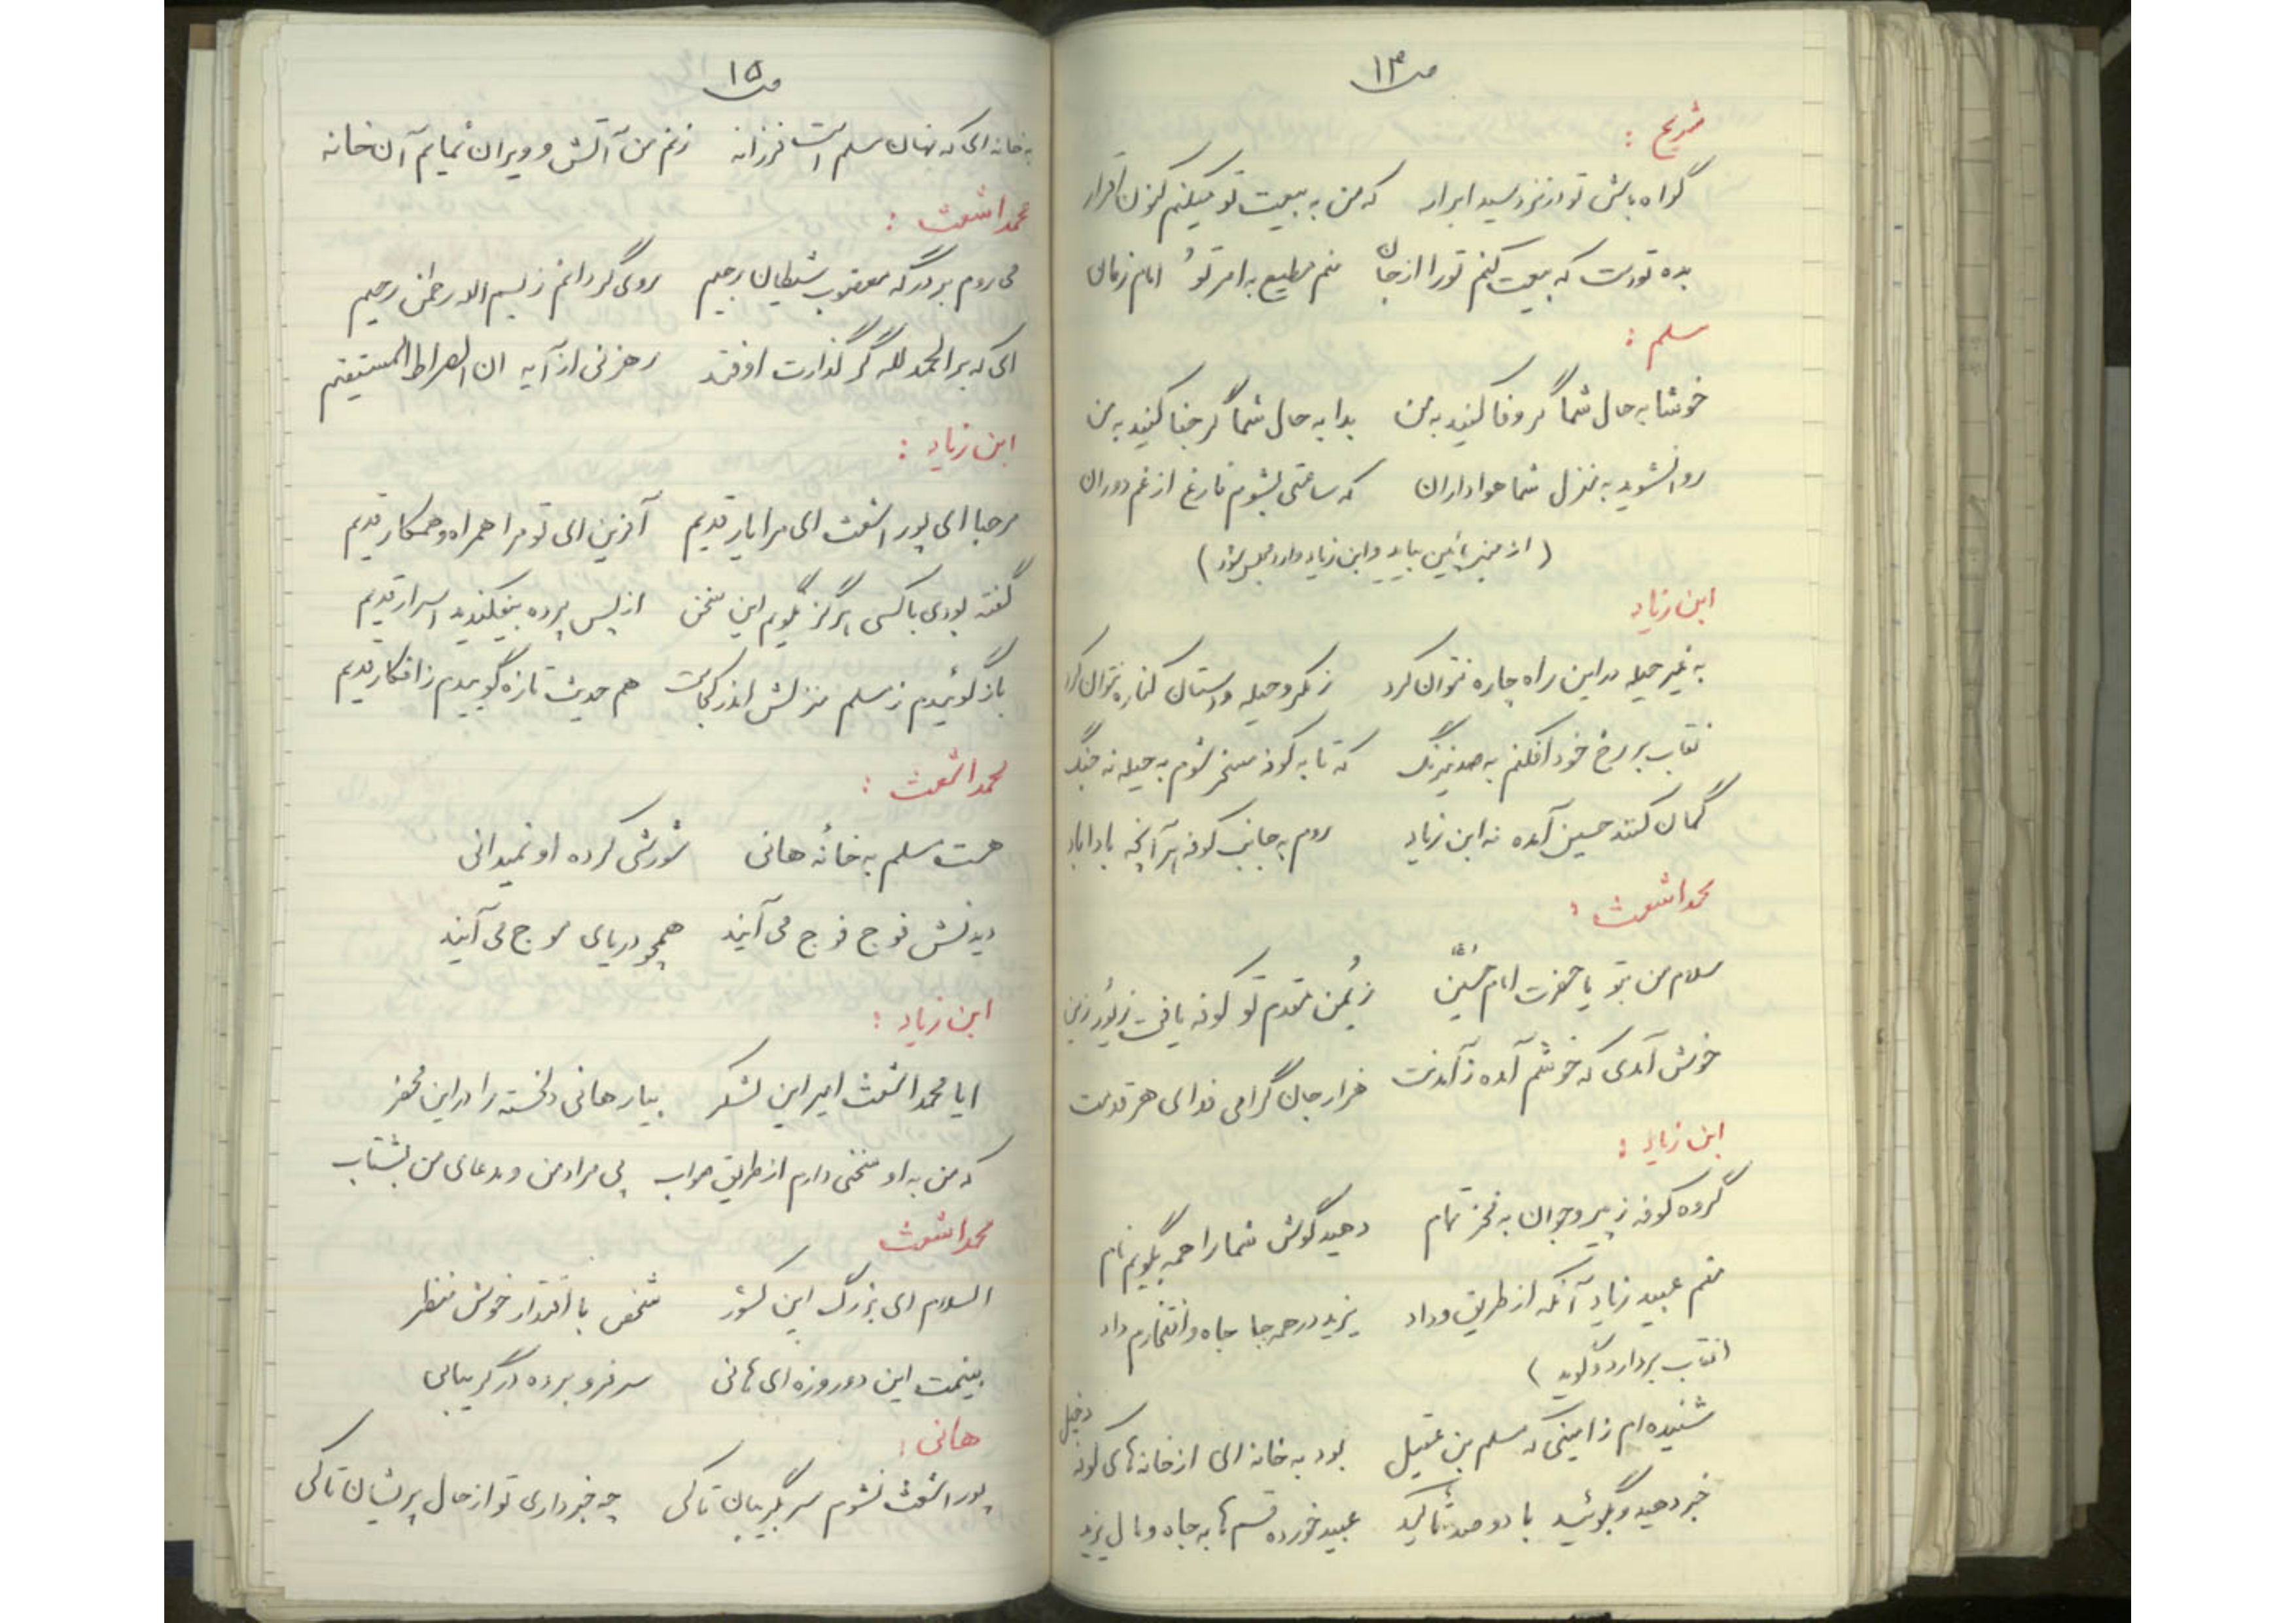 ص ۱۴
شریح :
گواه باش تو در نزد سید ابرار که من به بیعت تو میکنم کنون اقرار
بده تو دست که بیعت کنم تو را از جان منم مطیع به امر تو امام زمان
مسلم :
خوشا به حال شما گر وفا کنید به من بدا به حال شما گر جفا کنید به من
روان شوید به منزل شما هواداران که ساعتی بشوم فارغ از غم دوران
( از منبر پائین بیاید و ابن زیاد وارد مجلس شود )
ابن زیاد
به غیر حیله در این راه چاره نتوان کرد ز مکر و حیله و دستان کناره نتوان کرد
نقاب بر رخ خود افکنم به صد نیرنگ که تا به کوفه مسخر شوم به حیله نه جنگ
گمان کنند حسین آمده نه ابن زیاد روم به جانب کوفه هر آنچه بادا باد
محمد اشعث :
سلام من بتو یا حضرت امام حسین ز یُمن مقدم تو کوفه یافت زیور زین
خوش آمدی که خوشم آمده ز آمدنت هزار جان گرامی فدای هر قدمت
ابن زیاد :
گروه کوفه ز پیر و جوان به فخر تمام دهید گوش شما را همه بگویم نام
منم عبید زیاد آنکه از طریق وداد یزید در همه جا جاه و افتخارم داد
( نقاب بردارد و گوید )
شنیده ام ز امینی که مسلم بن عقیل بود به خانه ای از خانه های کوفه دخیل
خبر دهید و بگوئید با دو صد تأکید عبید خورده قسم ها به جاه و مال یزید
ص ۱۵
به خانه ای که نهان مسلم است فرزانه زنم من آتش و ویران نمایم آن خانه
محمد اشعث :
می روم بر درگه معقوب شیطان رجیم روی گردانم ز بسم الله رحمن رحیم
ای که بر الحمد لله گر گذارت اوفتد رهزنی از آیه ان الصراط المستقیم
ابن زیاد :
مرحبا ای پور اشعث ای مرا یار قدیم آفرین ای تو مرا همراه و همکار قدیم
گفته بودی با کسی هرگز نگویم این سخن از پس پرده بیفکندید اسرار قدیم
باز گوئیدم ز مسلم منزلش اندر کجاست هم حدیث تازه گوییدم ز افکار قدیم
محمد اشعث :
هست مسلم به خانهٔ هانی شورشی کرده او نمیدانی
دیدنش فوج فوج می آیند همچو دریای موج می آیند
ابن زیاد :
ایا محمد اشعث امیر این لشکر بیار هانی دلخسته را در این محضر
که من به او سخنی دارم از طریق صواب پی مراد من و مدعای من بشتاب
محمد اشعث
السلام ای بزرگ این کشور شخص با اقتدار خوش منظر
بینمت این دو روزه ای هانی سر فرو برده در گریبانی
هانی :
پور اشعث نشوم سر بگریبان تا کی چه خبر داری تو از حال پریشان تا کی